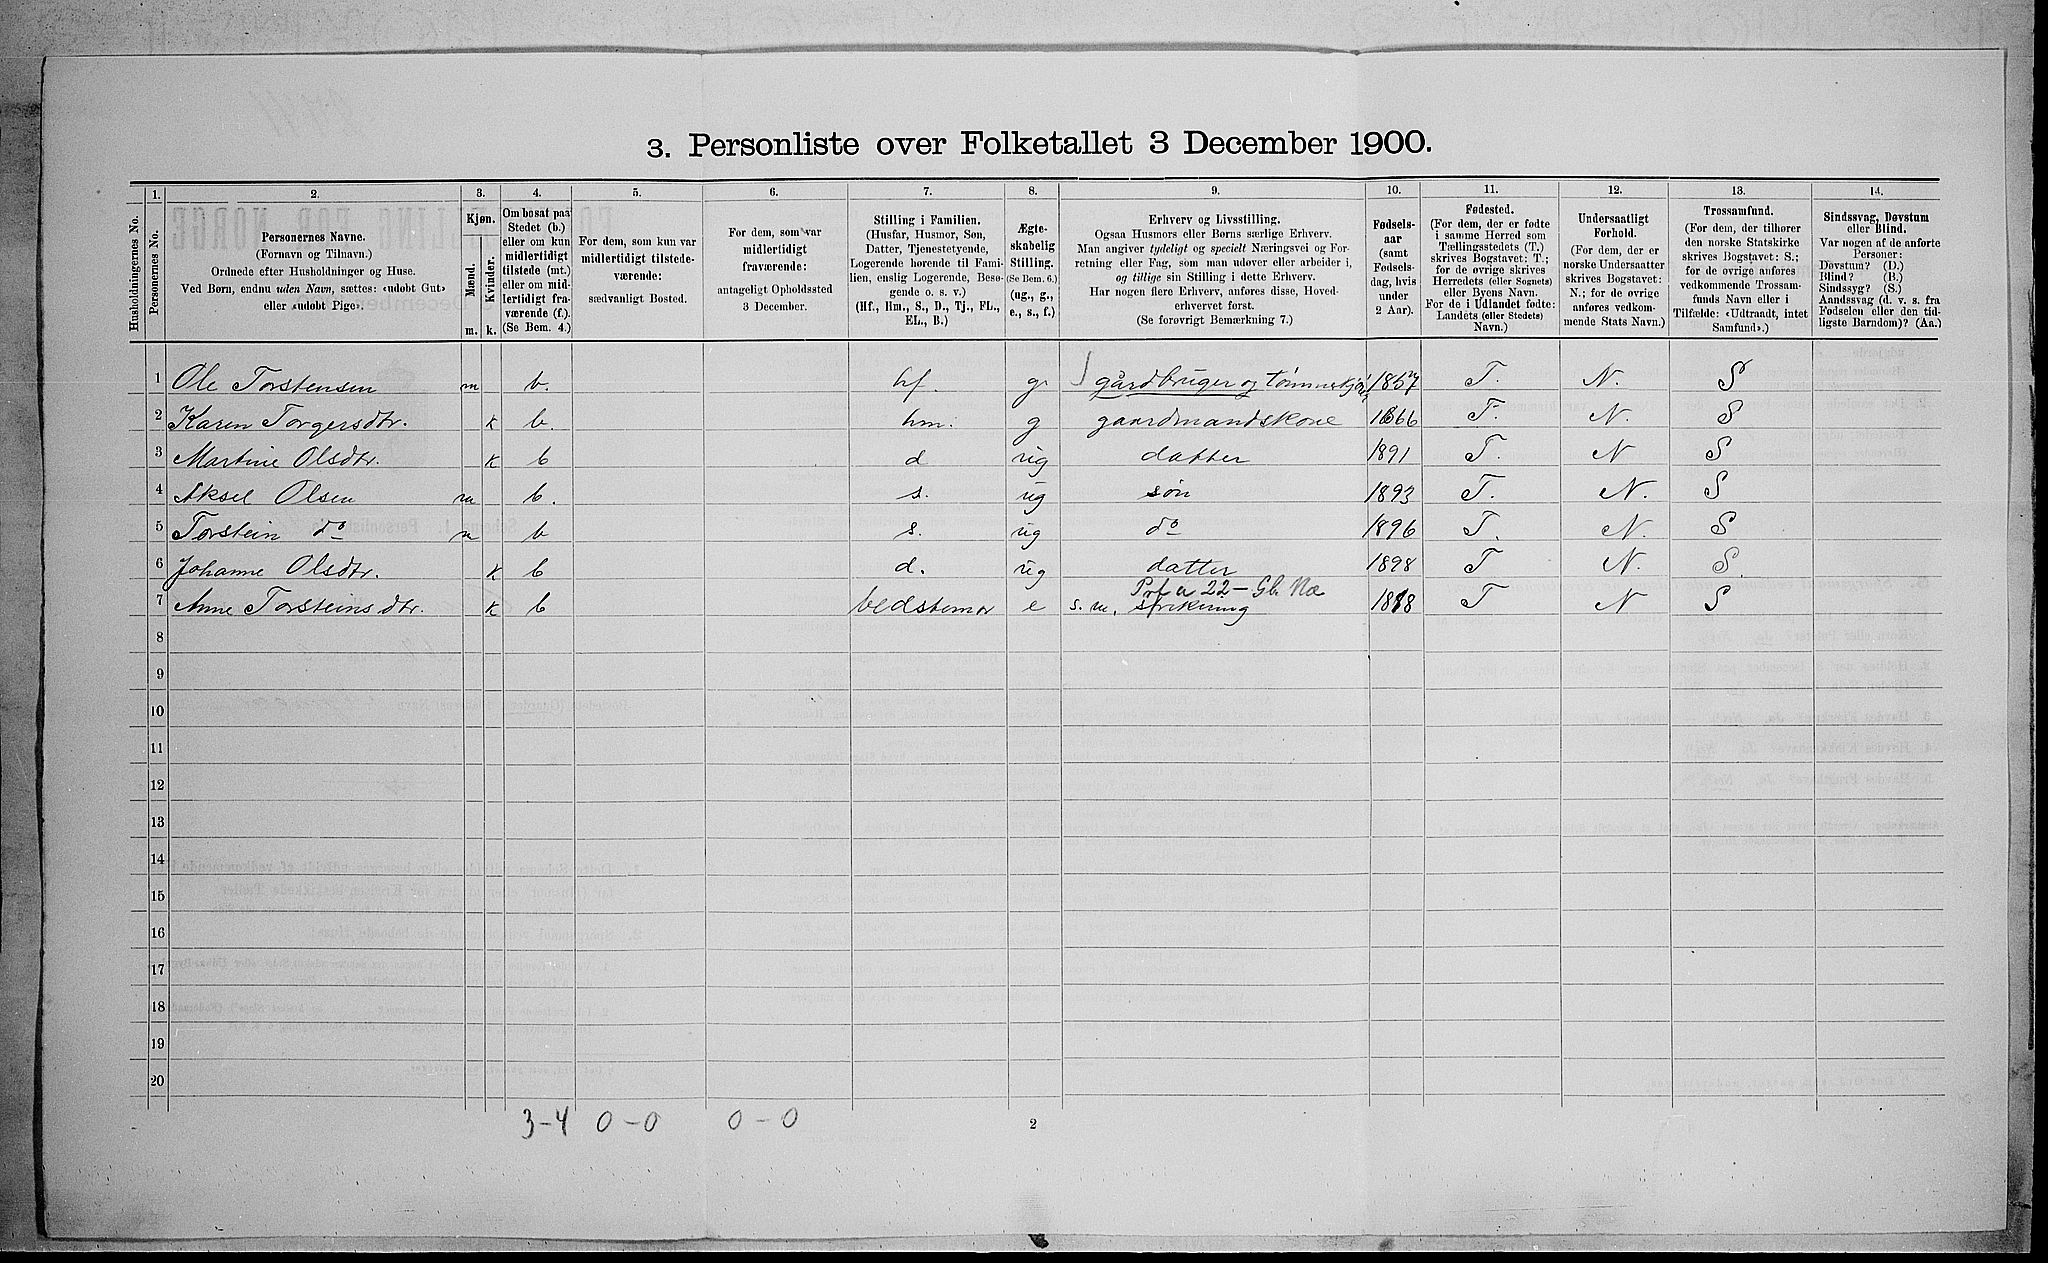 3. Personliste over Folketallet 3 December 1900.
1. 2. 3. 4. 5. 6. 7. 8. 9. 10. 11. 12. 13. 14.
Husholdningernes No.
Personernes No.
Personernes Navne.
(Fornavn og Tilnavn.)
Ordnede efter Husholdninger og Huse.
Ved Børn, endnu uden Navn, sættes: «udøbt Gut»
eller «udøbt Pige».
Kjøn.
Mænd.
Kvinder.
m. k.
Om bosat paa
Stedet (b.)
eller om kun
midlertidigt
tilstede (mt.)
eller om mid-
lertidigt fra-
værende (f.).
(Se Bem. 4.)
For dem, som kun var
midlertidigt tilstede-
værende:
sædvanligt Bosted.
For dem, som var
midlertidigt
fraværende:
antageligt Opholdssted
3 December.
Stilling i Familien.
(Husfar, Husmor, Søn,
Datter, Tjenestetyende,
Logerende hørende til Fami-
lien, enslig Logerende, Besø-
gende o. s. v.)
(Hf., Hm., S., D., Tj., FL.,
EL., B.)
Ægte-
skabelig
Stilling.
(Se Bem. 6.)
(ug., g.,
e., s., f.)
Erhverv og Livsstilling.
Ogsaa Husmors eller Børns særlige Erhverv.
Man angiver tydeligt og specielt Næringsvei og For-
retning eller Fag, som man udøver eller arbeider i,
og tillige sin Stilling i dette Erhverv.
Har nogen flere Erhverv, anføres disse, Hoved-
erhvervet først.
(Se forøvrigt Bemærkning 7.)
Fødsels-
aar
(samt
Fødsels-
dag, hvis
under
2 Aar).
Fødested.
(For dem, der er fødte
i samme Herred som
Tællingsstedets (T.)
skrives Bogstavet: T.;
for de øvrige skrives
Herredets (eller Sognets)
eller Byens Navn.
For de i Udlandet fødte:
Landets (eller Stedets)
Navn.)
Undersaatligt
Forhold.
(For dem, der er
norske Undersaatter
skrives Bogstavet:
N.; for de øvrige
anføres vedkom-
mende Stats Navn.)
Trossamfund.
(For dem, der tilhører
den norske Statskirke
skrives Bogstavet: S.;
for de øvrige anføres
vedkommende Trossam-
funds Navn eller i
Tilfælde: «Udtraadt, intet
Samfund».)
Sindssvag, Døvstum
eller Blind.
Var nogen af de anførte
Personer:
Døvstum? (D.)
Blind? (B.)
Sindssyg? (S.)
Aandssvag (d. v. s. fra
Fødselen eller den tid-
ligste Barndom)? (Aa.)
1 Ole Torstensen m b. hf. g. gårdbruger og tømmerkjører 1857 T. N. S
2 Karen Torgersdtr. k b. hm. g gaardmandskone 1866 T. N. S
3 Martine Olsdtr. k b d ug datter 1891 T. N S
4 Aksel Olsen m b. s. ug søn 1893 T. N. S
5 Torstein do m b s. ug do 1896 T. N. S
6 Johanne Olsdtr. k b d. ug datter 1898 T N. S.
22 – Gb. Næ
7 Anne Torsteinsdtr. k b bedstemor e s. m. strikning 1818 T N S
8
9
10
11
12
13
14
15
16
17
18
19
20
3–4 0–0 0–0
2